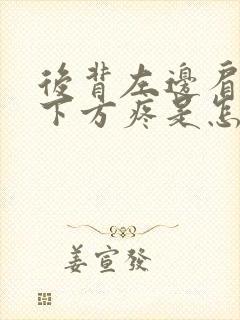 後背左邊肩
下方疼是怎
姜宣發